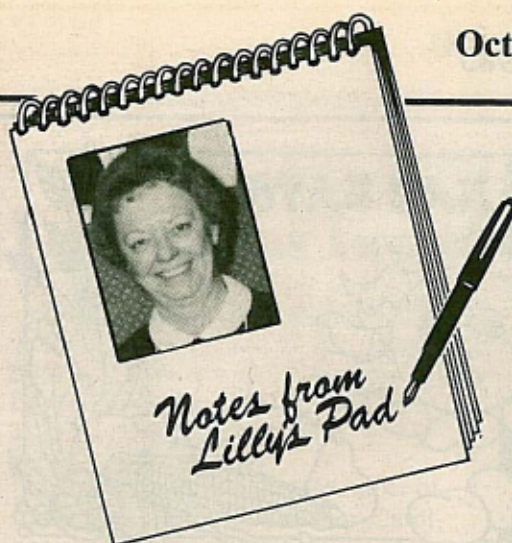 Oct
Notes from
Lilly's Pad